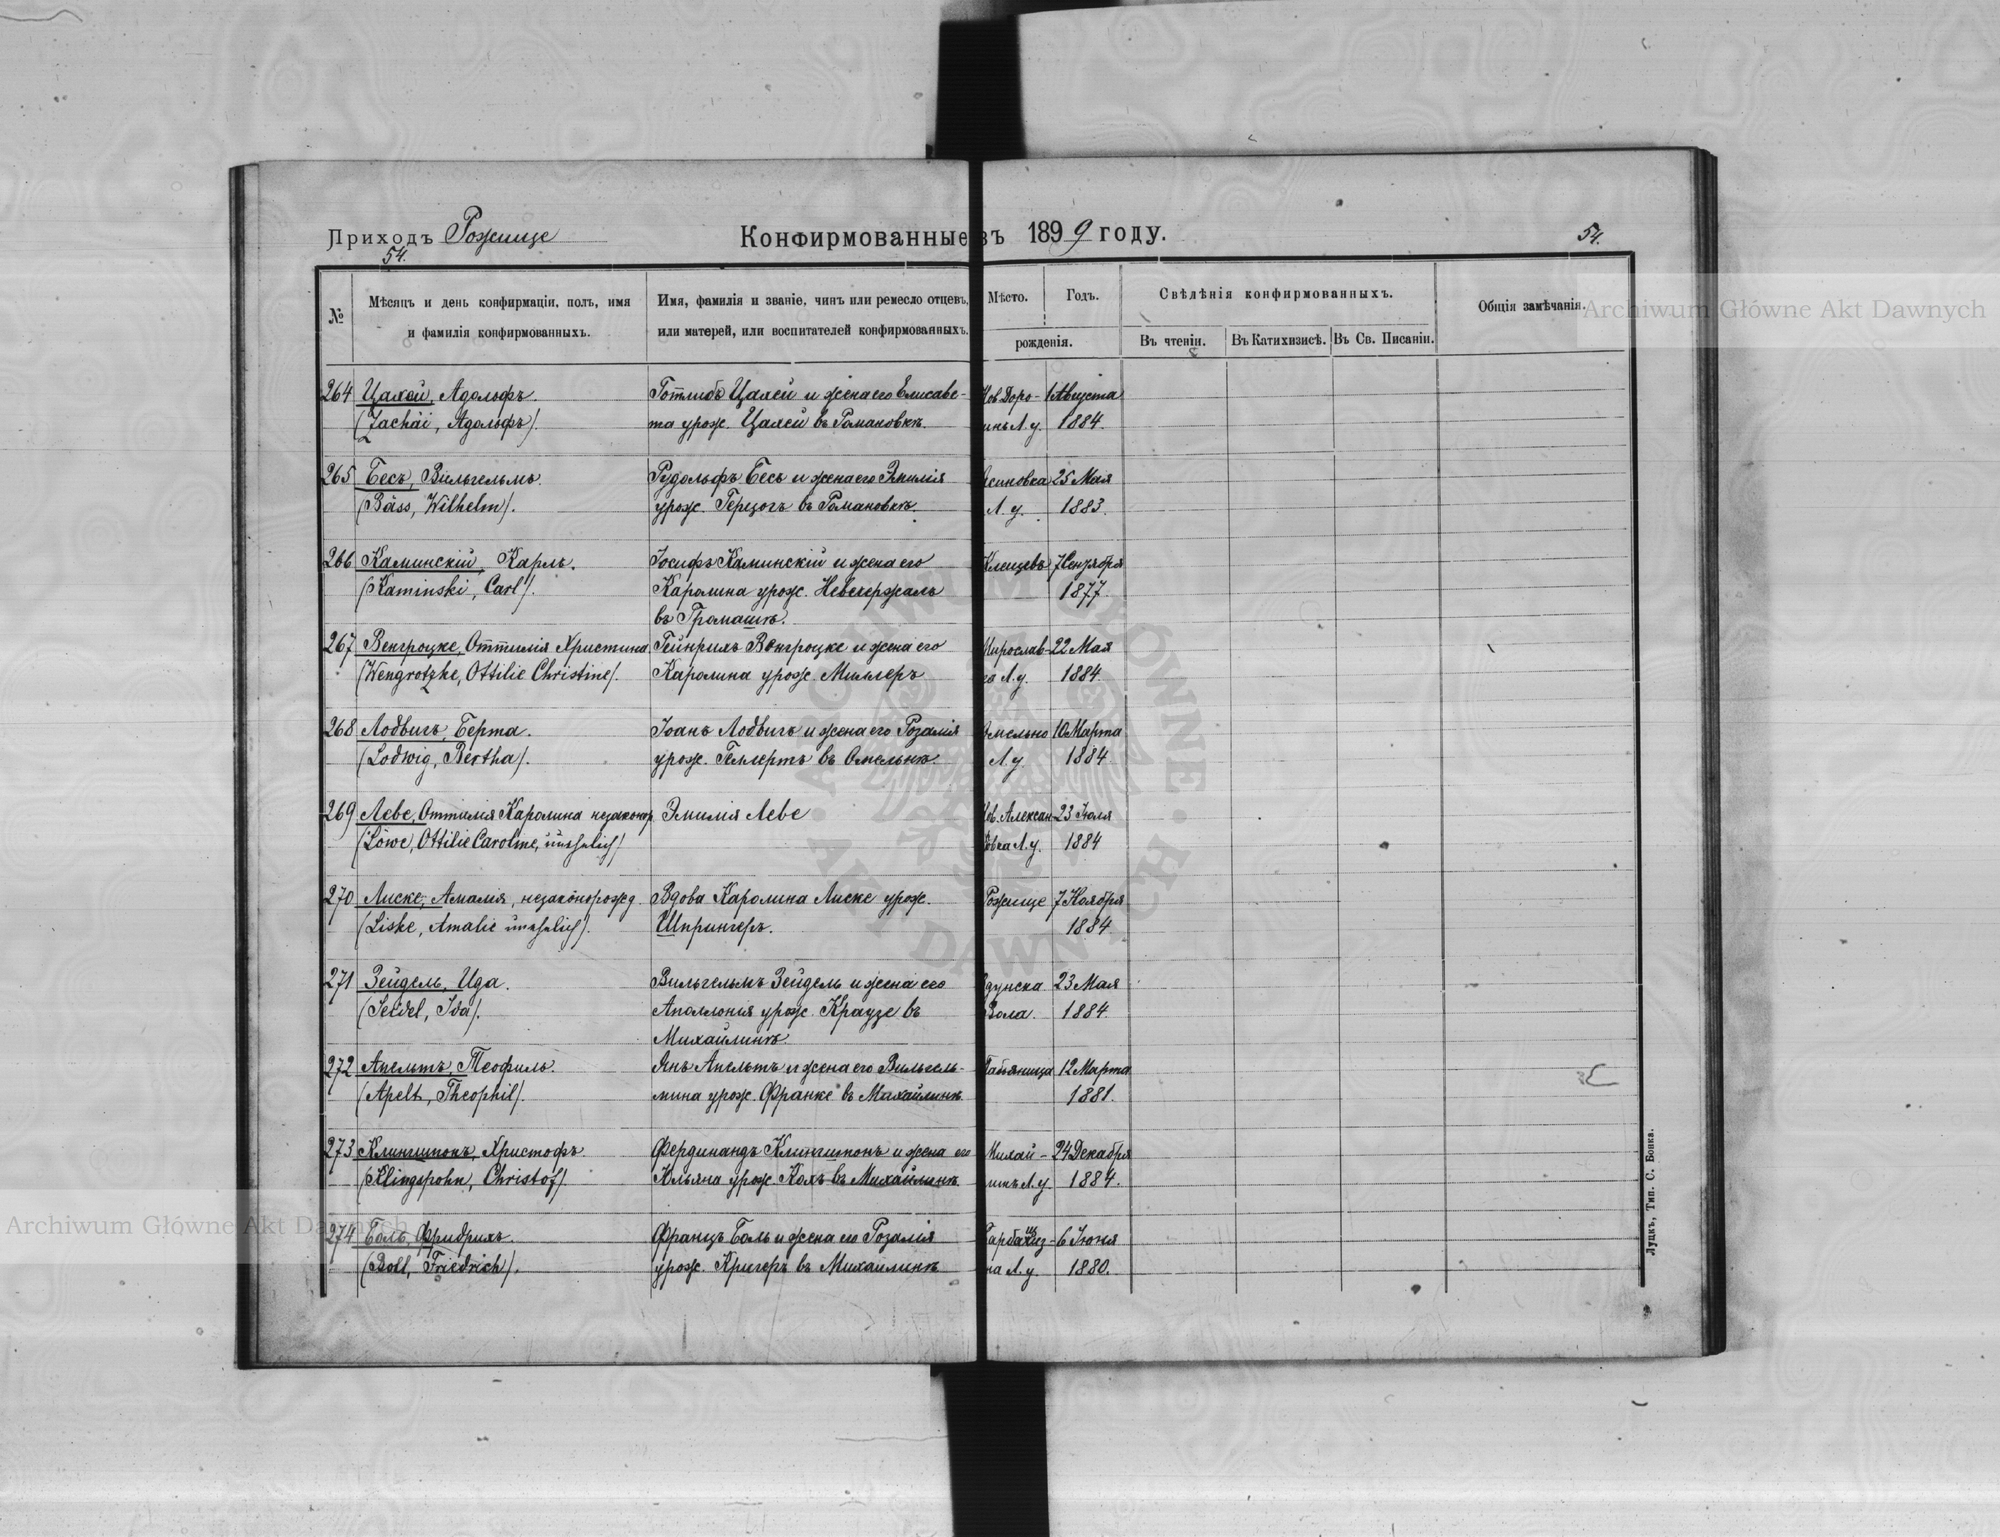 Приходъ Рожище
Конфирмованные въ 1899 году.
54.
54.
№
Мѣсяцъ и день конфирмаціи, полъ, имя
и фамилія конфирмованныхъ.
Имя, фамилія и званіе, чинъ или ремесло отцевъ,
или матерей, или воспитателей конфирмованныхъ.
Мѣсто.
Годъ.
рожденія.
Свѣдѣнія конфирмованныхъ.
Въ чтеніи.
Въ Катихизисѣ.
Въ Св. Писаніи.
Общія замѣчанія.
264 Цахей, Адольфъ. Готлибъ Цахей и жена его Елисаве- Нов Доро- 1 Августа
(Zachäi, Адольфъ). та урож. Цахей въ Романовкѣ. Л. у. 1884.
265 Бесъ, Вильгельмъ. Рудольфъ Бесъ и жена его Эмилія Осиновка 25 Мая
(Bäss, Wilhelm). урож. Герцогъ въ Романовкѣ. Л. у. 1883.
266 Каминскій, Карлъ. Іосифъ Каминскій и жена его Клещевъ 7
(Kaminski, Carl). Каролина урож. 1877.
въ
267 Венгроцке, Оттилія Христина. Гейнрихъ Венгроцке и жена его Мирослав- 22 Мая
(Wengrotzke, Ottilie Christine). Каролина урож. Миллеръ Л. у. 1884
268 Лодвигъ, Берта. Іоанъ Лодвигъ и жена его Розалія Омельно 10 Марта
(Lodwig, Bertha). урож. Геллертъ въ Омельнѣ Л. у. 1884
269 Леве, Оттилія Каролина незаконор. Эмилія Леве Нов. Алексан- 23 Іюля
(Löwe, Ottilie Caroline, unehelich) Л. у. 1884
270 Лиске, Амалія, незаконорожд. Вдова Каролина Лиске урож. Рожище 7 Ноября
(Liske, Amalie unehelich). Шпрингеръ. 1884
271 Зейдель, Ида. Вильгельмъ Зейдель и жена его Здунска 23 Мая
(Seidel, Ida). Аполлонія урож. Краузе въ Вола. 1884
Михайлинѣ
272 Апельтъ, Теофиль. Янъ Апельтъ и жена его Вильгель- Пабяница 12 Марта
(Apelt, Theophil). мина урож. Франке въ Михайлинѣ 1881.
273 Клингшпонъ, Христофъ. Фердинандъ Клингшпонъ и жена его Михай- 24 Декабря
(Klingspohn, Christof). Юльяна урож. Кохъ въ Михайлинѣ линъ Л. у. 1884.
274 Боль, Фридрихъ. Францъ Боль и жена его Розалія 6 Іюня
(Boll, Friedrich). урож. Кригеръ въ Михайлинѣ на Л. у. 1880.
Луцкъ, Тип. С. Бонка.
Archiwum Główne Akt Dawnych
Archiwum Główne Akt Dawnych
ARCHIWUM GŁÓWNE · AKT DAWNYCH ·